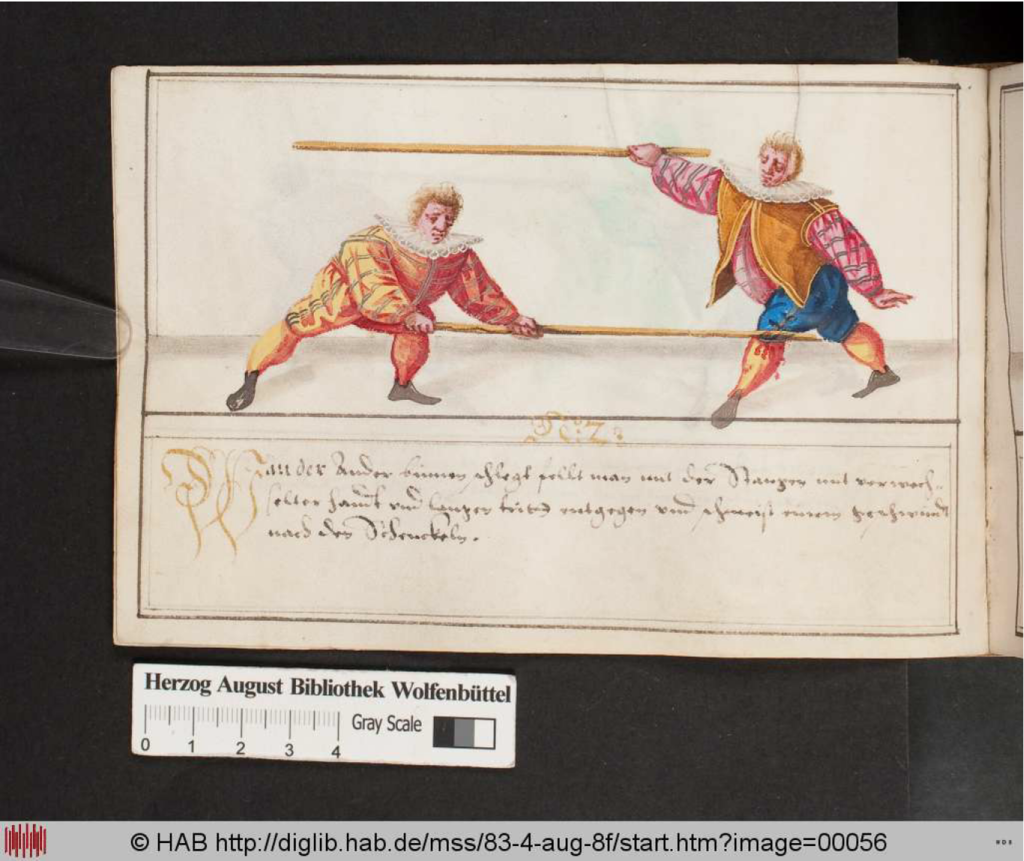 N: 2:
Wan der Ander binnen schlegt fellt man mit der Stangen mit verwech-
selter handt vnd langen tritt entgegen vnd schmeist einem geschwindt
nach den Schenckeln.
Herzog August Bibliothek Wolfenbüttel
Gray Scale
0 1 2 3 4
© HAB http://diglib.hab.de/mss/83-4-aug-8f/start.htm?image=00056